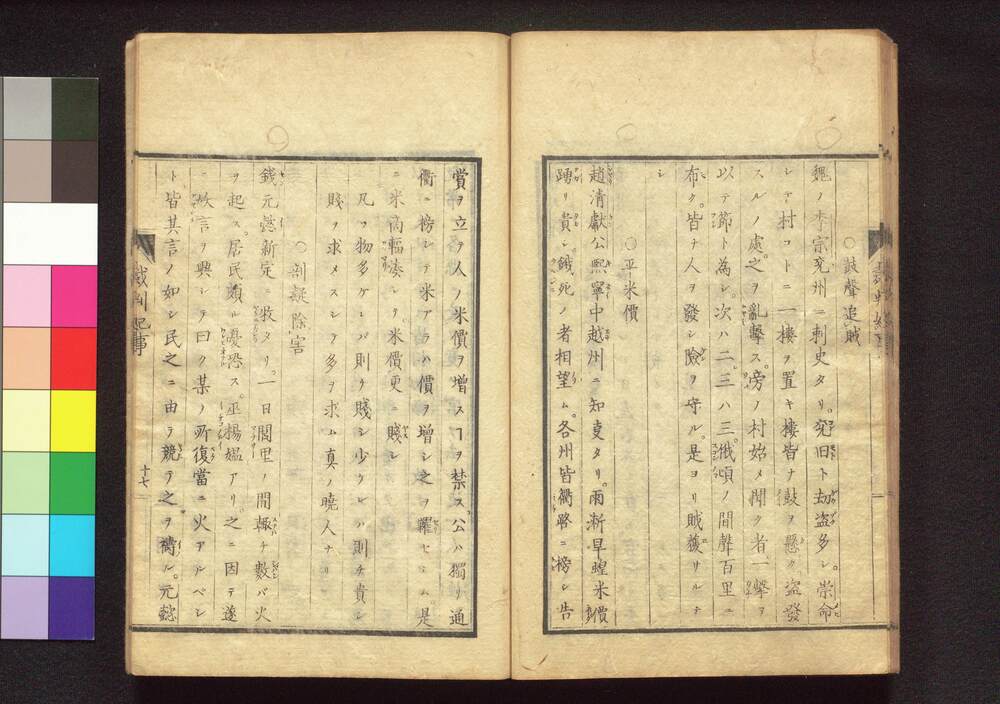 ○鼓聲追賊
魏ノ李崇兗州ニ刺史タリ。兗旧ト劫盗多シ。崇命
シテ村コトニ一樓ヲ置キ樓皆ナ鼓ヲ懸ク盗發
スルノ處之ヲ乱擊ス。旁ノ村始メ聞ク者一擊ヲ
以テ節ト為シ次ハ二。三ハ三。俄頃ノ間聲百里ニ
布ク。皆ナ人ヲ發シ險ヲ守ル。是ヨリ賊獲リルナ
シ
○平米價
趙清獻公熙寧中越州ニ知吏タリ。兩浙旱蝗米價
踴リ貴シ。餓死ノ者相望ム。各州皆衢路ニ榜シ告
賞ヲ立ヲ人ノ米價ヲ增スヿヲ禁ス。公ハ獨リ通
衢ニ榜シテ米アラハ價ヲ增シ之ヲ糶セシム是
ニ米商輻湊シノ米價更ニ賤シ
凡ソ物多ケレバ則チ賤シ少ケレハ則チ貴シ
賤ヲ求メスシテ多ヲ求ム真ノ曉人ナリ
○剖疑除害
錢元懿新定ニ牧タリ。一日閭里ノ間輙チ數バ火
ヲ起ス。居民頗ル憂恐ス。巫楊媼アリ。之ニ因テ遂
ニ妖言ヲ興シテ曰ク某ノ所復當ニ火アルベシ
ト皆其言ノ如シ民之ニ由テ競テ之ヲ禱ル。元懿
裁判紀事
十七